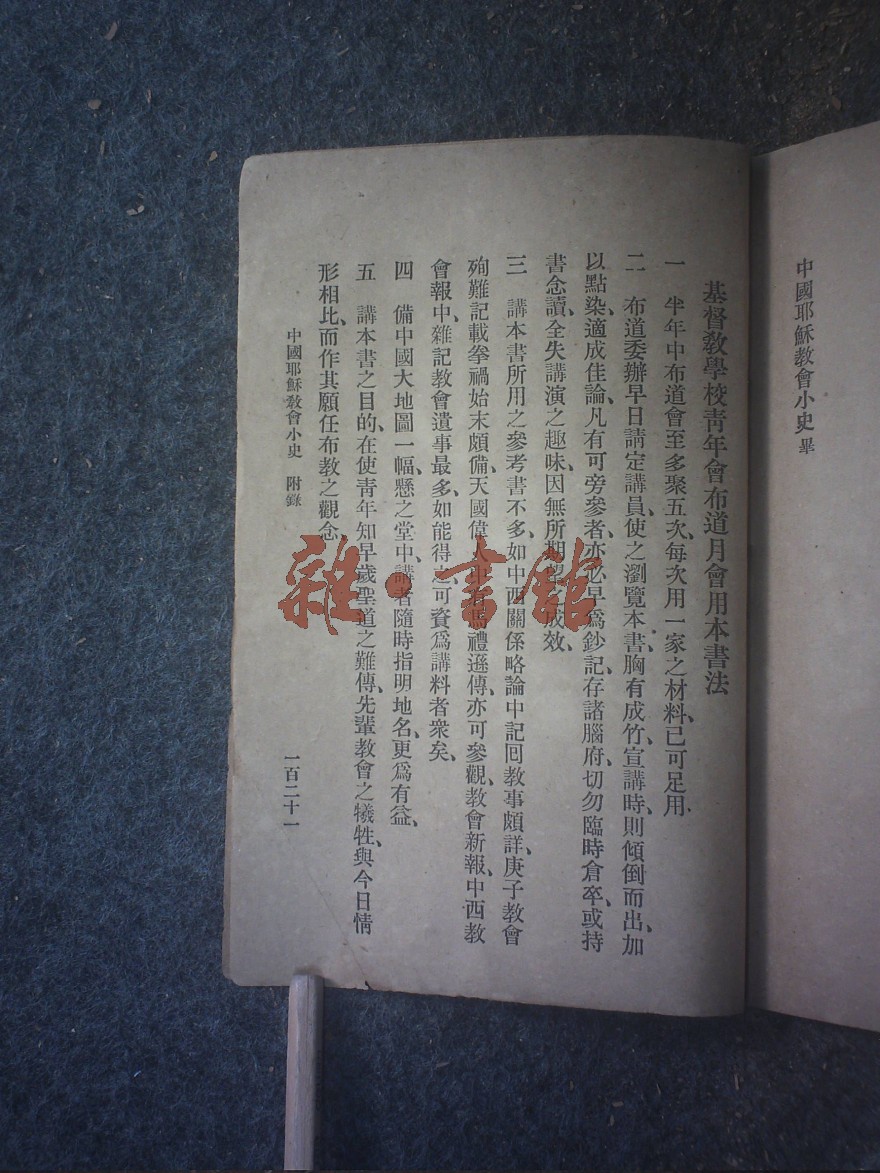 中國耶穌教會小史 畢
基督教學校靑年會布道月會用本書法
一 半年中布道會至多聚五次、每次用一家之材料、已可足用、
二 布道委辦早日請定講員、使之瀏覽本書、胸有成竹、宣講時、則傾倒而出、加
以點染、適成佳論、凡有可旁參者、亦必早爲鈔記、存諸腦府、切勿臨時倉卒、或持
書念讀、全失講演之趣味、因無所期望之成效、
三 講本書所用之參考書不多、如中西關係略論中記回教事頗詳、庚子教會
殉難記載拳禍始末頗備、天國偉人中有馬禮遜傳、亦可參觀、教會新報、中西教
會報中、雜記教會遺事最多、如能得之、可資爲講料者衆矣、
四 備中國大地圖一幅、懸之堂中、講者隨時指明地名、更爲有益、
五 講本書之目的、在使靑年知早歲聖道之難傳、先輩教會之犧牲、與今日情
形相比、而作其願任布教之觀念、
中國耶穌敎會小史 附錄 一百二十一
雜·书館